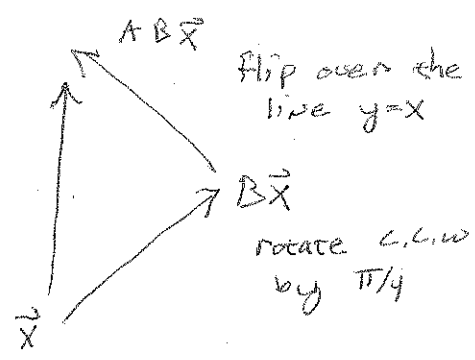 A B x⃗
flip over the
line y=x
B x⃗
rotate c.c.w
by π/4
x⃗